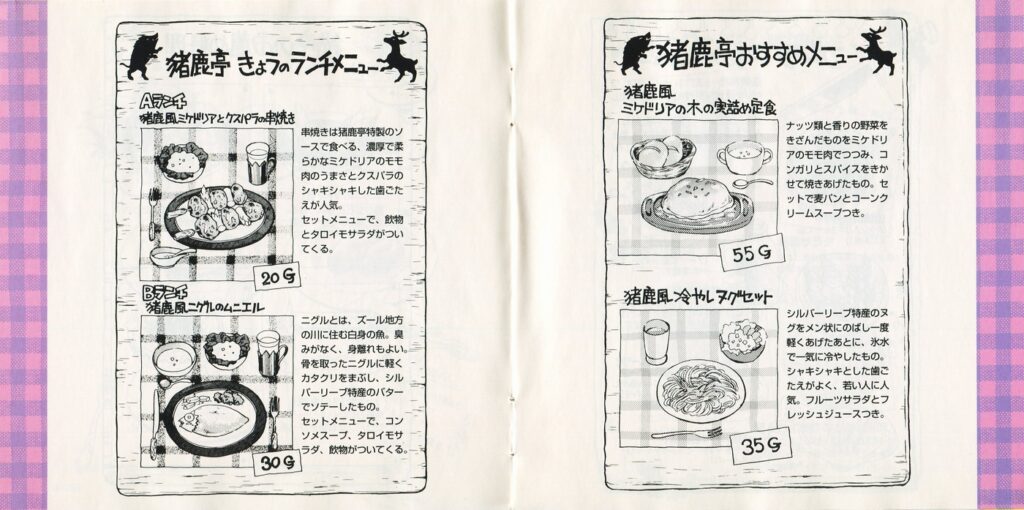 猪鹿亭 きょうのランチメニュー
Aランチ
猪鹿風ミケドリアとクスパラの串焼き
串焼きは猪鹿亭特製のソ
ースで食べる、濃厚で柔
らかなミケドリアのモモ
肉のうまさとクスパラの
シャキシャキした歯ごた
えが人気。
セットメニューで、飲物
とタロイモサラダがつい
てくる。
20G
Bランチ
猪鹿風ニグルのムニエル
ニグルとは、ズール地方
の川に住む白身の魚。臭
みがなく、身離れもよい。
骨を取ったニグルに軽く
カタクリをまぶし、シル
バーリーブ特産のバター
でソテーしたもの。
セットメニューで、コン
ソメスープ、タロイモサ
ラダ、飲物がついてくる。
30G
猪鹿亭おすすめメニュー
猪鹿風
ミケドリアの木の実詰め定食
ナッツ類と香りの野菜を
きざんだものをミケドリ
アのモモ肉でつつみ、コ
ンガリとスパイスをきか
せて焼きあげたもの。セ
ットで麦パンとコーンク
リームスープつき。
55G
猪鹿風冷やしヌグセット
シルバーリーブ特産のヌ
グをメン状にのばし一度
軽くあげたあとに、氷水
で一気に冷やしたもの。
シャキシャキとした歯ご
たえがよく、若い人に人
気。フルーツサラダとフ
レッシュジュースつき。
35G